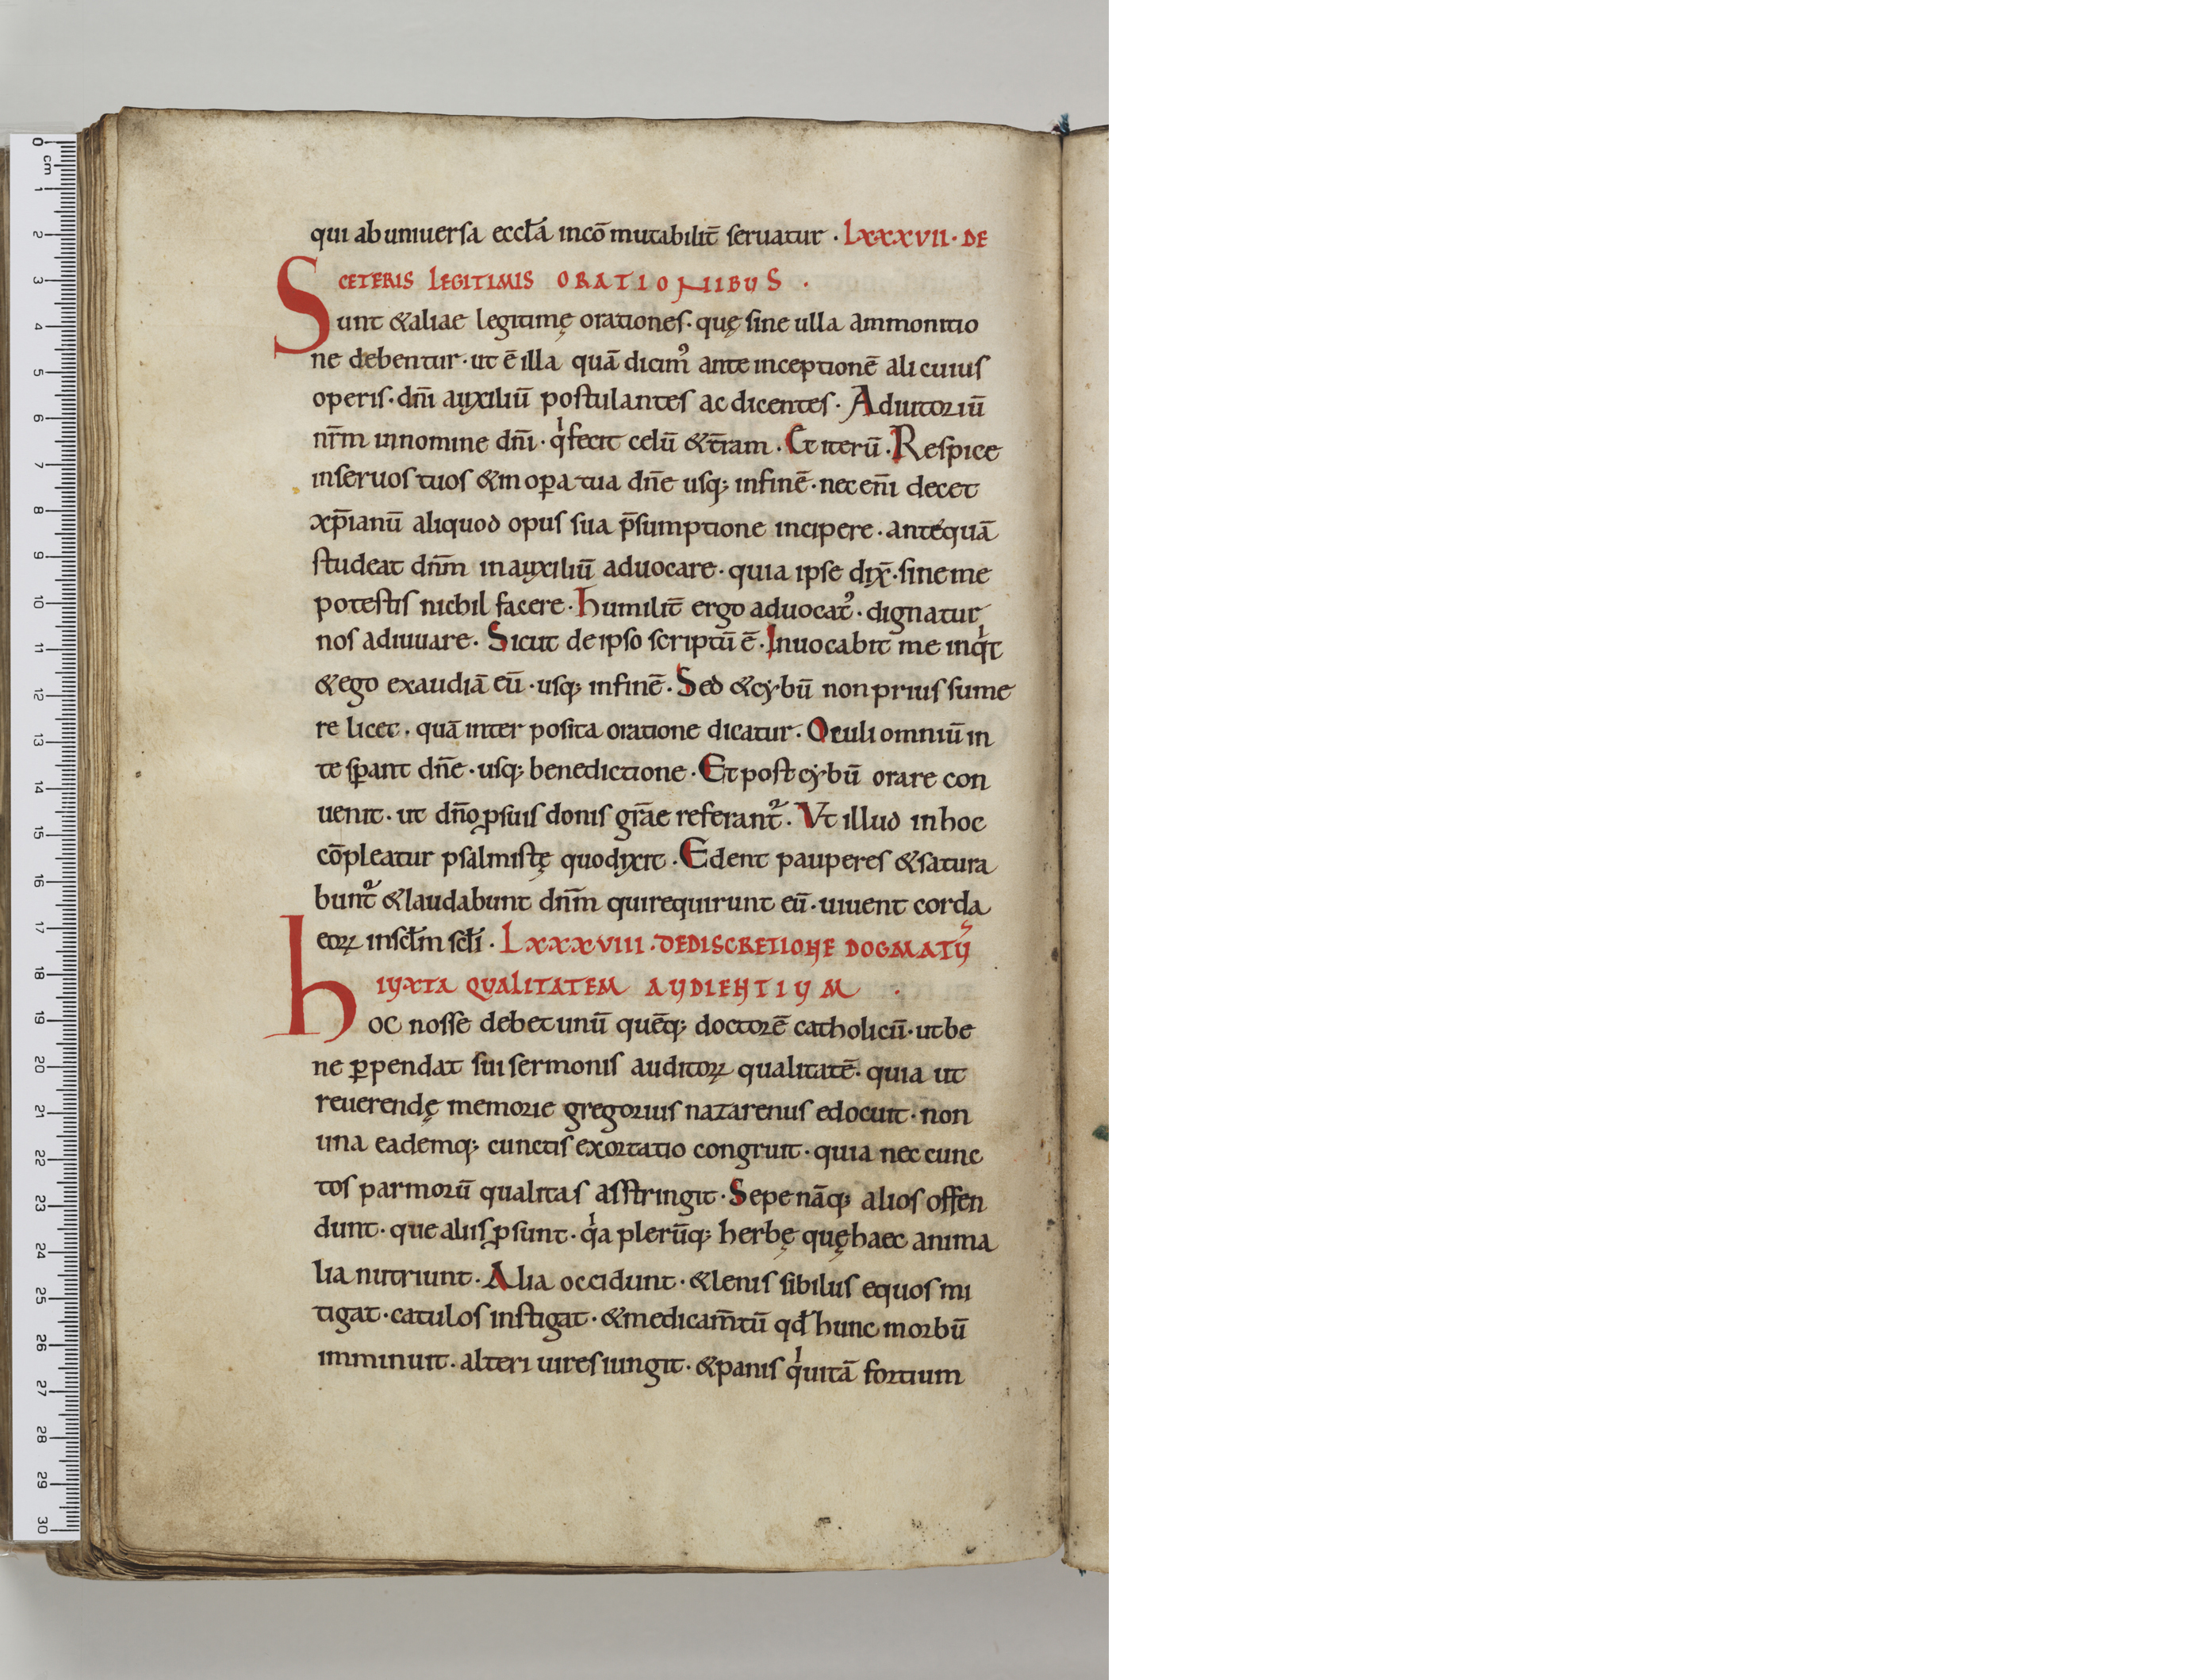 qui ab uniuersa eccłā incōmutabilit̄ seruatur · Lxxxvii · DE
CETERIS LEGITIMIS ORATIONIBUS ·
Sunt &aliae legitimę orationes · quę sine ulla ammonitio
ne debentur · ut ē illa quā dicim᷒ ante inceptionē alicuius
operis · dn̄i auxiliū postulantes ac dicentes · Adiutoriū
nr̄m in nomine dn̄i · qͥ fecit celū &t̄ram · Et iterū · Respice
in seruos tuos &in oꝑa tua dn̄e usq; in finē · nec eni̅ decet
xp̄ianū aliquod opus sua p̄sumptione incipere · antequā
studeat dn̄m in auxiliū aduocare · quia ipse dix̄ · sine me
potestis nichil facere · humilit̄ ergo aduocat᷒ · dignatur
nos adiuuare · Sicut de ipso scriptū ē · Inuocabit me inqͥt
&ego exaudiā eū · usq; in finē · Sed &cẏbū non prius sume
re licet · quā inter posita oratione dicatur · Oculi omniū in
te sꝑant dn̄e · usq; benedictione · Et post cẏbū orare con
uenit · ut dn̄o ꝓ suis donis gr̄ae referant᷑ · Vt illud in hoc
cōpleatur psalmistę quod dixit · Edent pauperes &satura
bunt᷑ &laudabunt dn̄m qui requirunt eū · uiuent corda
eoꝝ in scłm scłi · Lxxxviii · DE DISCRETIONE DOGMATŪ
IUXTA QUALITATEM AUDIENTIUM ·
hoc nosse debet unū quēq; doctorē catholicū · ut be
ne ꝑpendat sui sermonis auditoꝝ qualitatē · quia ut
reuerendę memorie gregorius nazarenus edocuit · non
una eademq; cunctis exortatio congruit · quia nec cunc
tos par morū qualitas asstringit · Sepe nāq; alios offen
dunt · que aliis ꝓsunt · qͥa plerūq; herbę quę haec anima
lia nutriunt · Alia occidunt · &lenis sibilus equos mi
tigat · catulos instigat · &medicam̄tū qđ hunc morbū
imminuit · alteri uires iungit · &panis qͥ uitā fortium